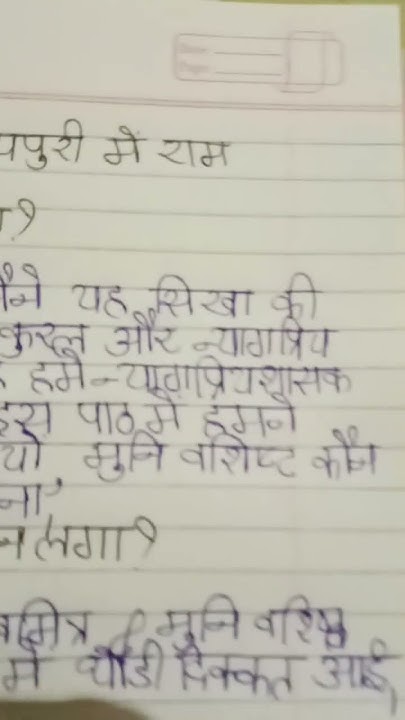 यपुरी में राम
ा?
ैने यह सिखा की
कुशल और न्यायप्रिय
हमे न्यायप्रिय शासक
इस पाठ में हमने
यो मुनि वशिष्ट कौन
ना'
न लगा?
मित्र, मुनि वशिष्ठ
में थोडी दिक्कत आई,